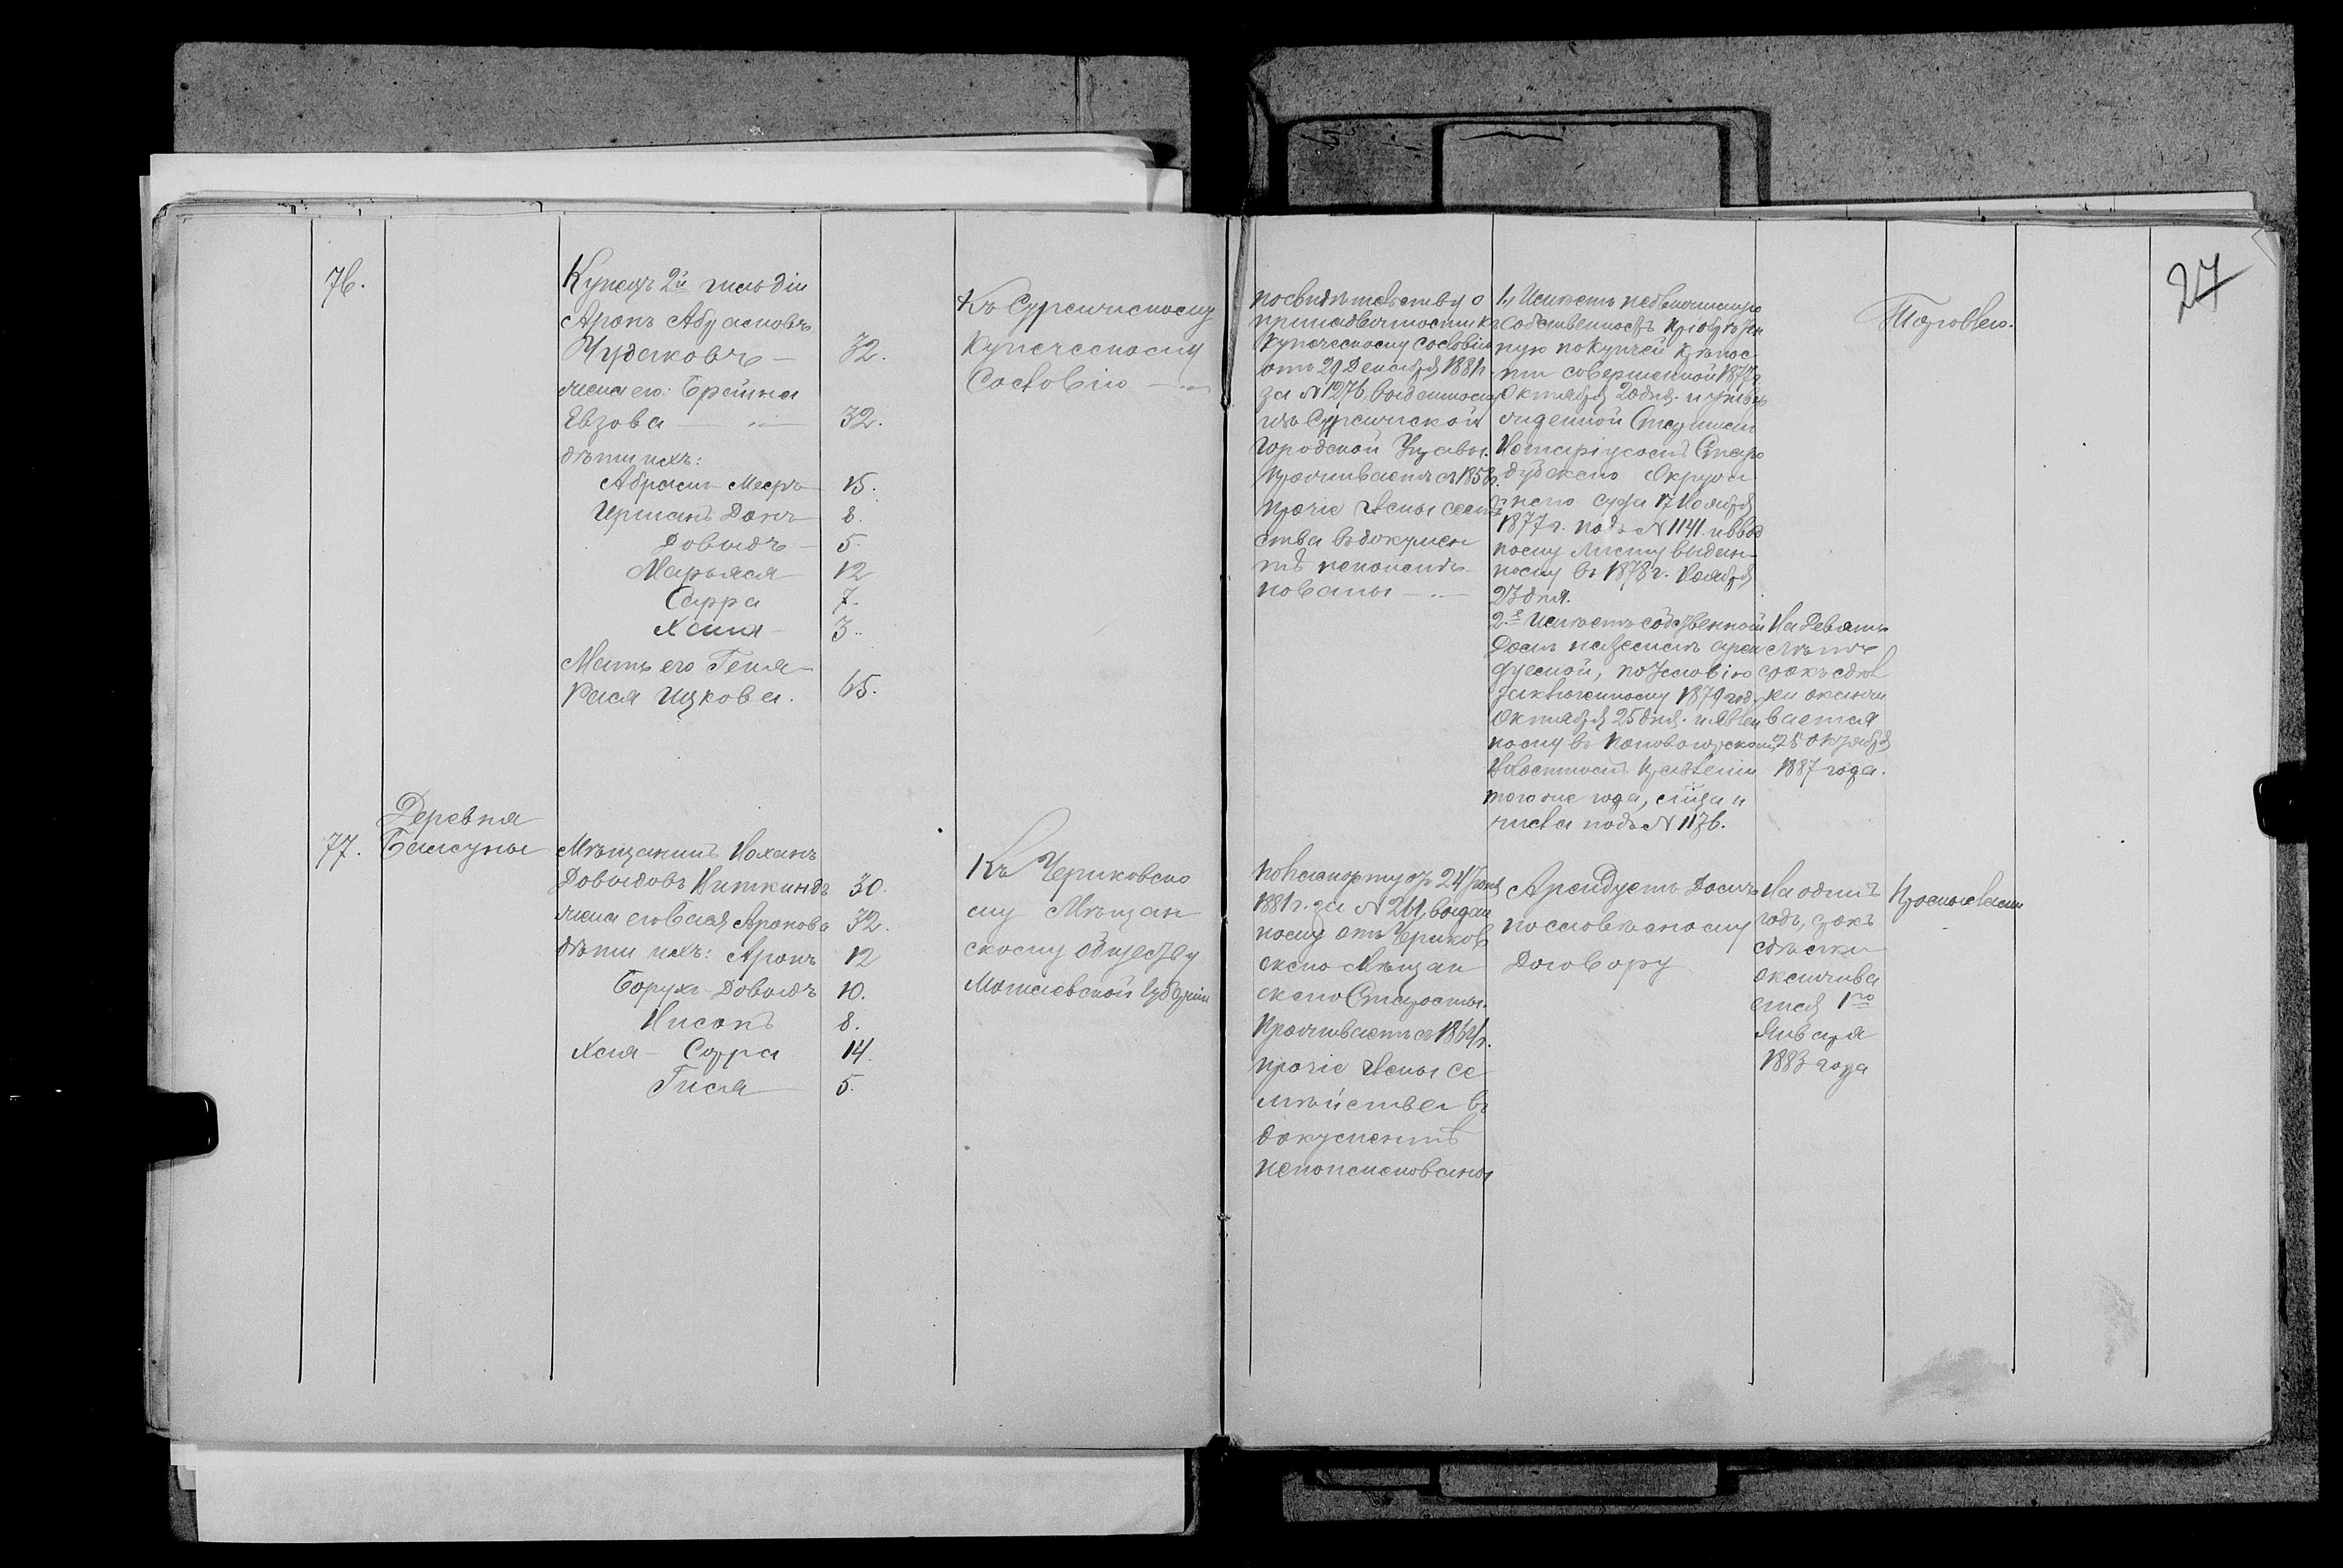 27
76.
Купецъ 2й гильдіи
Аронъ Абрамовъ
Чудаковъ — 32.
жена его: Брайна
Евзова — 32.
дѣти ихъ:
Абрамъ Мееръ 15.
Цеманъ Донъ 8.
Довыдъ — 5.
Марьяся 12
Сарра 7.
Хана 3.
Мать его Геня-
Рася Ицкова. 65.
Къ Суражскому
Купеческому
Сословію —
по свидѣтельству о
принадлежности къ
купеческому сословію
отъ 29 Декабря 1881 г.
за № 1276, выданному
изъ Суражской
Городской Управы.
Проживаетъ съ 1858 г.
прочіе члены семей
ства въ докумен
тѣ непоимено
нованы —
1, Имѣетъ недвижимую
собственность пріобрѣтен
ную по купчей крѣпос
ти совершенной 1877 г.
Октября 20 дня. и утвер
жденной Старшимъ
Нотаріусомъ Старо
дубскаго Окруж
наго суда 17 Ноября
1877 г. подъ № 1141. и ввод
ному листу выдан-
ному въ 1878 г. Ноября
23 дня.
2.е Имѣетъ собственной
домъ на земли арен
дуемой, по условію
заключенному 1879 год.
Октября 25 дня. и явлен
ному въ
Волостномъ Правленіи
того же года, мѣсяца и
числа подъ № 1176.
На девять
лѣтъ
срокъ сдѣл
ки оканчи
вается
25 Октября
1887 года.
Торговлею.
77.
Деревня
Балсуны
Мѣщанинъ Нохамъ
Довыдовъ Ниткиндъ 30.
жена его Бася Аронова 32.
дѣти ихъ: Аронъ 12
Борухъ-Довыдъ 10.
Нисонъ 8.
Хая - Сорра 14.
Гися 5.
Къ Чериковско
му Мѣщан
скому обществу
Могилевской губерніи
по паспорту отъ 24 Іюня
1881 г. за № 261, выдан
ному отъ Чериков
скаго Мѣщан
скаго Старосты.
Проживаетъ съ 1864 г.
прочіе члены се
мѣйства въ
документѣ
непоименованы
Арендуетъ домъ
по словесному
договору
На одинъ
годъ, срокъ
сдѣлки
оканчива
ется 1го
Января
1883 года
Промыслами